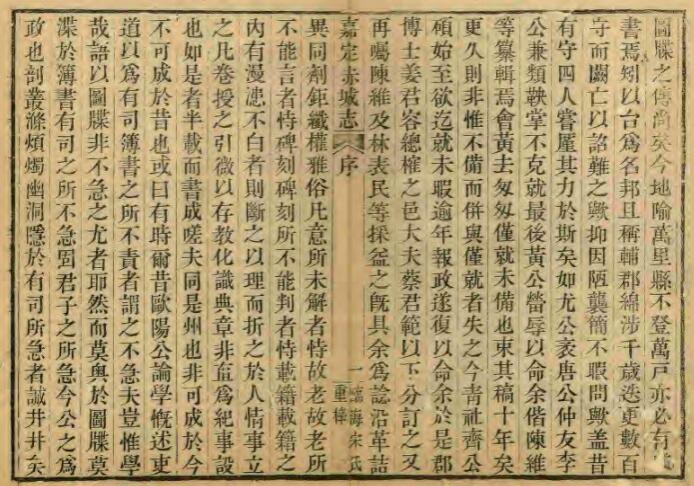 圖牒之傳尚矣今地喻萬里縣不登萬戸亦必有
書焉矧以台爲名邦且稱輔郡綿渉千歲迭更數百
守而闕亡以詔難之歟抑因陋襲簡不暇問歟盖昔
有守四人嘗屬其力於斯矣如尤公袤唐公仲友李
公兼類鞅掌不克就最後黃公𤲞辱以命余偕陳維
等纂輯焉會黃去匆匆僅就未備也束其稿十年矣
更久則非惟不備而併與僅就者失之今青社齊公
碩始至欲迄就未暇逾年報政遂復以命余於是郡
博士姜君容總榷之邑大夫蔡君範以下分訂之又
再囑陳維及林表民等採益之旣具余爲諗沿革詰
嘉定赤城志
序
一
臨海宋氏
重梓
異同劑鉅纖權雅俗凡意所未解者恃故老故老所
不能言者恃碑刻碑刻所不能判者恃載籍載籍之
內有漫漶不白者則斷之以理而折之於人情事立
之凡卷授之引微以存教化識典章非直爲紀事設
也如是者半載而書成嗟夫同是州也非可成於今
不可成於昔也或曰有時爾昔歐陽公論學慨述吏
道以爲有司簿書之所不責者謂之不急夫豈惟學
哉語以圖牒非不急之尤者耶然而莫輿於圖牒莫
渫於簿書有司之所不急固君子之所急今公之爲
政也剖叢滌煩燭幽洞隱於有司所急者誠井井矣